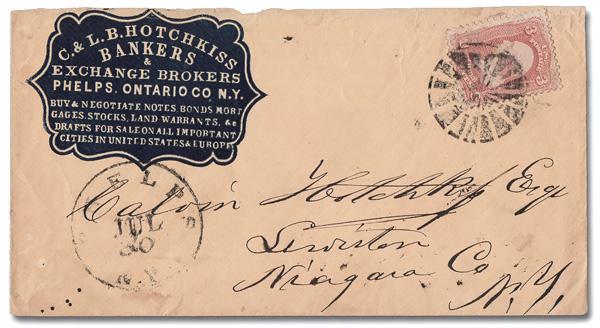 C. & L. B. HOTCHKISS
BANKERS
&
EXCHANGE BROKERS
PHELPS, ONTARIO CO N.Y.
BUY & NEGOTIATE NOTES, BONDS MORT
GAGES, STOCKS, LAND WARRANTS, &c
DRAFTS FOR SALE ON ALL IMPORTANT
CITIES IN UNITED STATES & EUROPE
3
3
PHELPS
JUL
30
N.Y.
Calvin Hotchkiss Esqr
Lewiston
Niagara Co
N.Y.